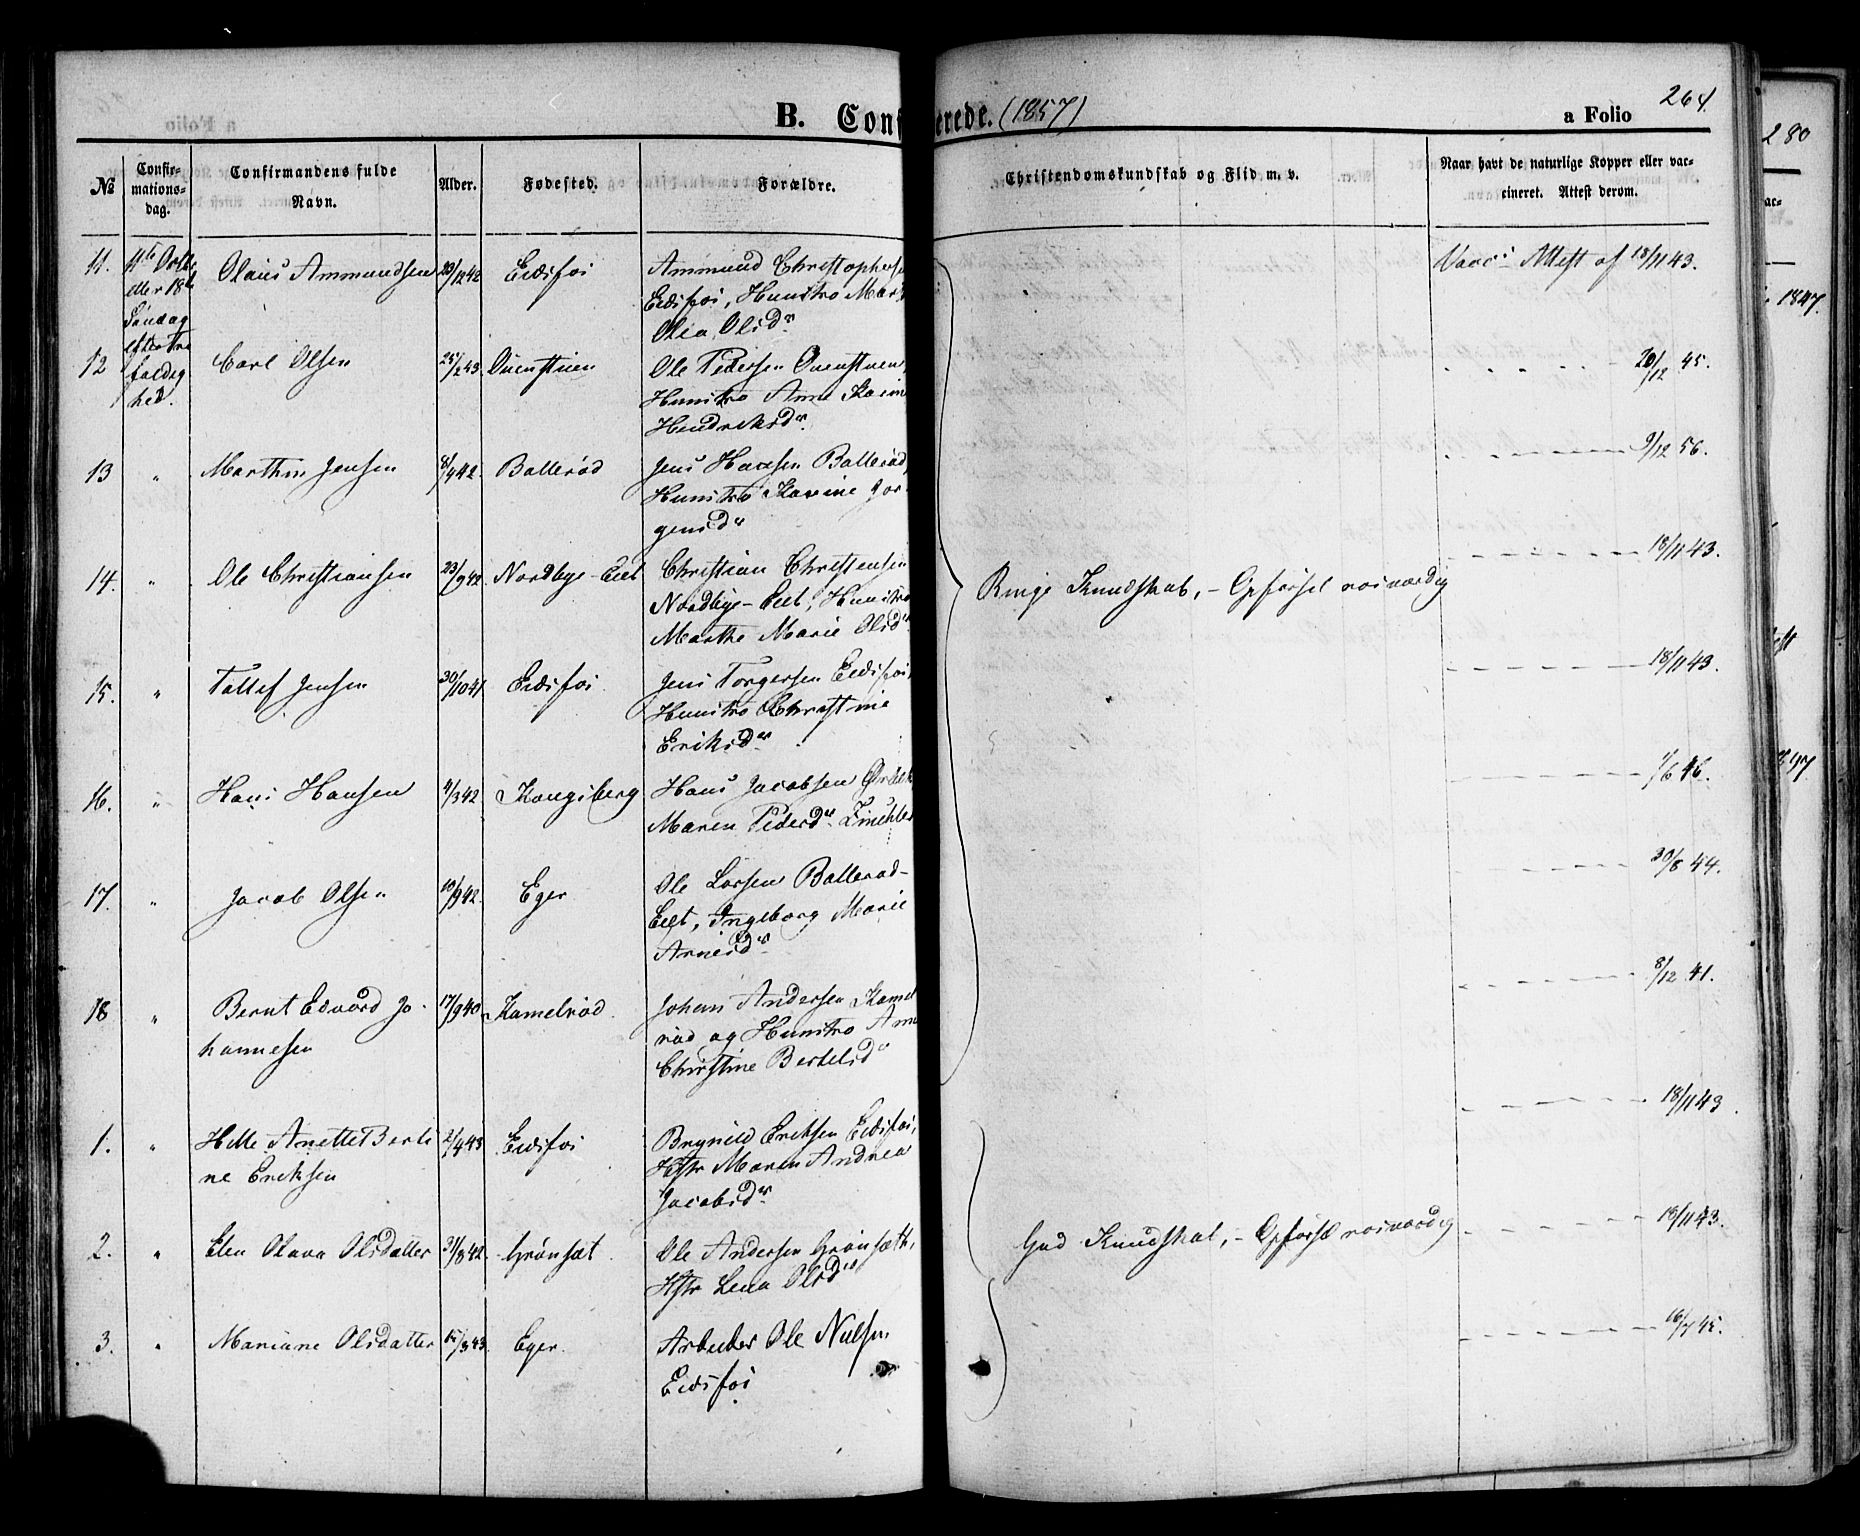 B. Conf
erede. (1857)
a Folio 264.
280
№
Confir-
mations-
dag.
Confirmandens fulde
Navn.
Alder.
Fødested.
Forældre.
Christendomskundskab og Flid m. v.
Naar havt de naturlige Kopper eller vac-
cineret. Attest derom.
11.
eller 18de
Søndag
foldig
hed.
Olaus Ammundsen
23/12 42
Eidsfos
Ammund Christophers
Eidsfos, Hustro Mar
Olea Olsdr.
Vacc. Attest af 18/11 43.
1847.
12
Carl Olsen
25/2 43
Ole Pedersen
Hustro Anne Karin
Hendriksdr.
20/12 45.
13
"
Marthin Jensen
8/4 42.
Ballerød
Jens Hansen Ballerød,
Hustro Karine Jør-
gensdr
9/12 56.
14.
"
Ole Christiansen
23/9 42.
Nordbye-Eiet
Christian Christensen
Nordbye-Eiet, Hustro
Marthe Marie Olsdr.
18/11 43.
Ringe Kundskab, - Opførsel rosværdig
15.
"
Tollef Jensen
30/10 41.
Eidsfos.
Jens Torgersen Eidsfos,
Hustro Christine
Eriksdr.
18/11 43.
16.
"
Hans Hansen
4/3 42
Kongsberg
Hans Jacobsen
Maren Pedersdr.
1/6 46.
17.
"
Jacob Olsen
10/9 42.
Eger
Ole Larsen Ballerød-
Eiet, Ingeborg Marie
Arnesdr.
30/8 44.
18
"
Bernt Edvard Jo-
hannesen
17/9 40.
Kamelrød.
Johan Andersen Kamel
rød og Hustro Ann
Christine Bertelsd
8/12 41.
1.
"
Helle Anette Berti
ne Eriksen
2/4 43
Eidsfos
Brynild Eriksen Eidsfos,
Hstr Maren Andrea
Jacobsdr.
18/11 43.
2.
"
Elen Olava Olsdatter
31/8 42.
Grønsæt.
Ole Andersen Grønsæth,
Hstr Lena Olsdr
18/11 43.
God Kundskab, - Opførsel rosværdig
3.
"
Mariane Olsdatter
15/3 43.
Eger.
Arbeider Ole Nilsen
Eidsfos
16/7 45.